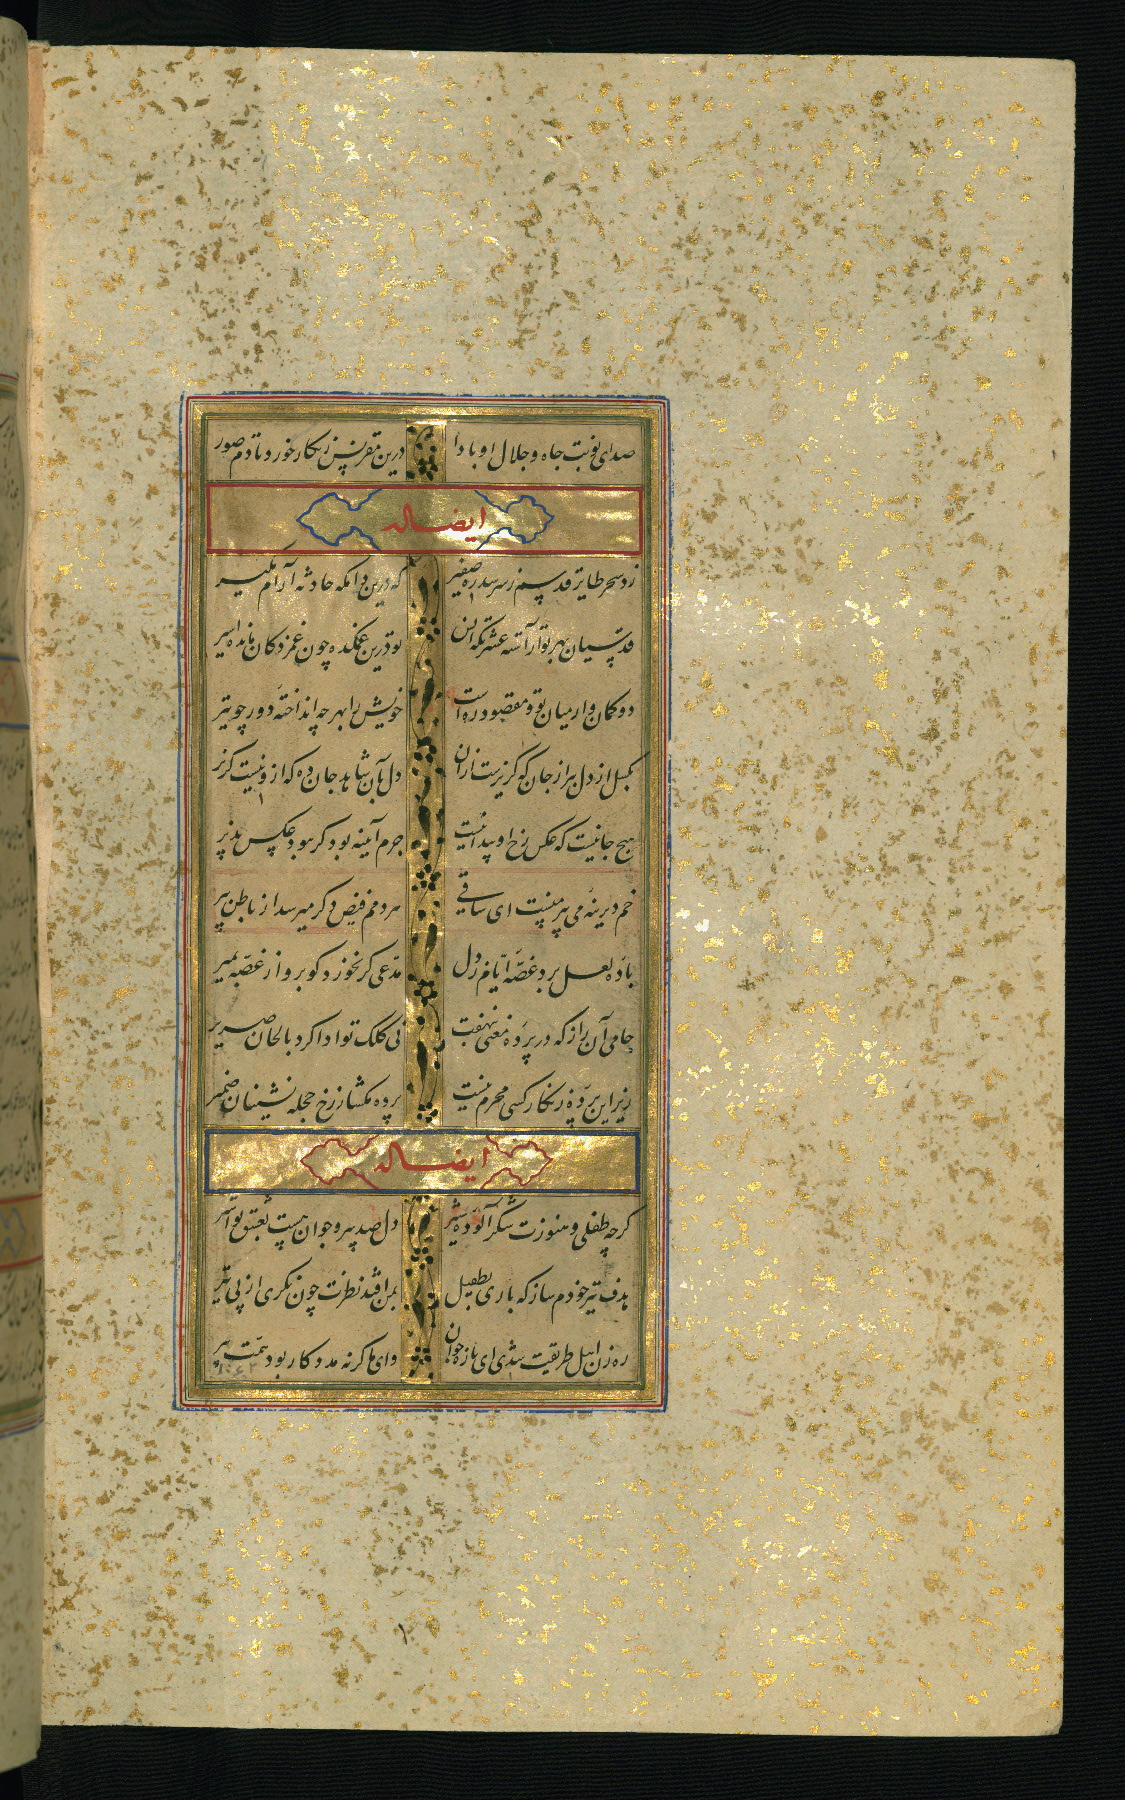 صدای نوبت جاه و جلال او بادا درین مقرنس زنگار خورد تا دم صور
ایضا له
زد سحر طایر قدسم ز سر سدره صفیر که درین دامگه حادثه آرام مگیر
قدسیان بهر تو آراسته عشرتگه انس تو درین غمکده چون غمزدگان مانده اسیر
دو کمان وار میان تو و مقصود ره است خویش را بهر چه انداخته دور چو تیر
بگسل از دل ببر از جان که گزیرست ازان دل بآن شاهد جان ده که ازو نیست گزیر
هیچ جا نیست که عکس رخ او پیدا نیست جرم آیینه بود کر سود عکس پذیر
خم دیرینه می پر میست ای ساقی هر دمم فیض دگر میرسد از باطن پیر
باده لعل برد غصه ایام ز دل مدعی گر نخورد گو برو از غصه بمیر
جامی آن راز که در پرده معنی بنهفت نی کلک تو ادا کرد بالحان صریر
زیر این پرده زنگار کسی محرم نیست پرده مگشا ز رخ حجله نشینان ضمیر
ایضا له
گرچه طفلی و هنوزت شکرآلوده بشیر دل صد پیر و جوان هست بعشق تو اسیر
هدف تیر خودم ساز که باری بطفیل بمن افتد نظرت چون نگری از پی تیر
ره زن اهل طریقت شدی ای تازه جوان وای ما گر نه مددکار بود همت پیر